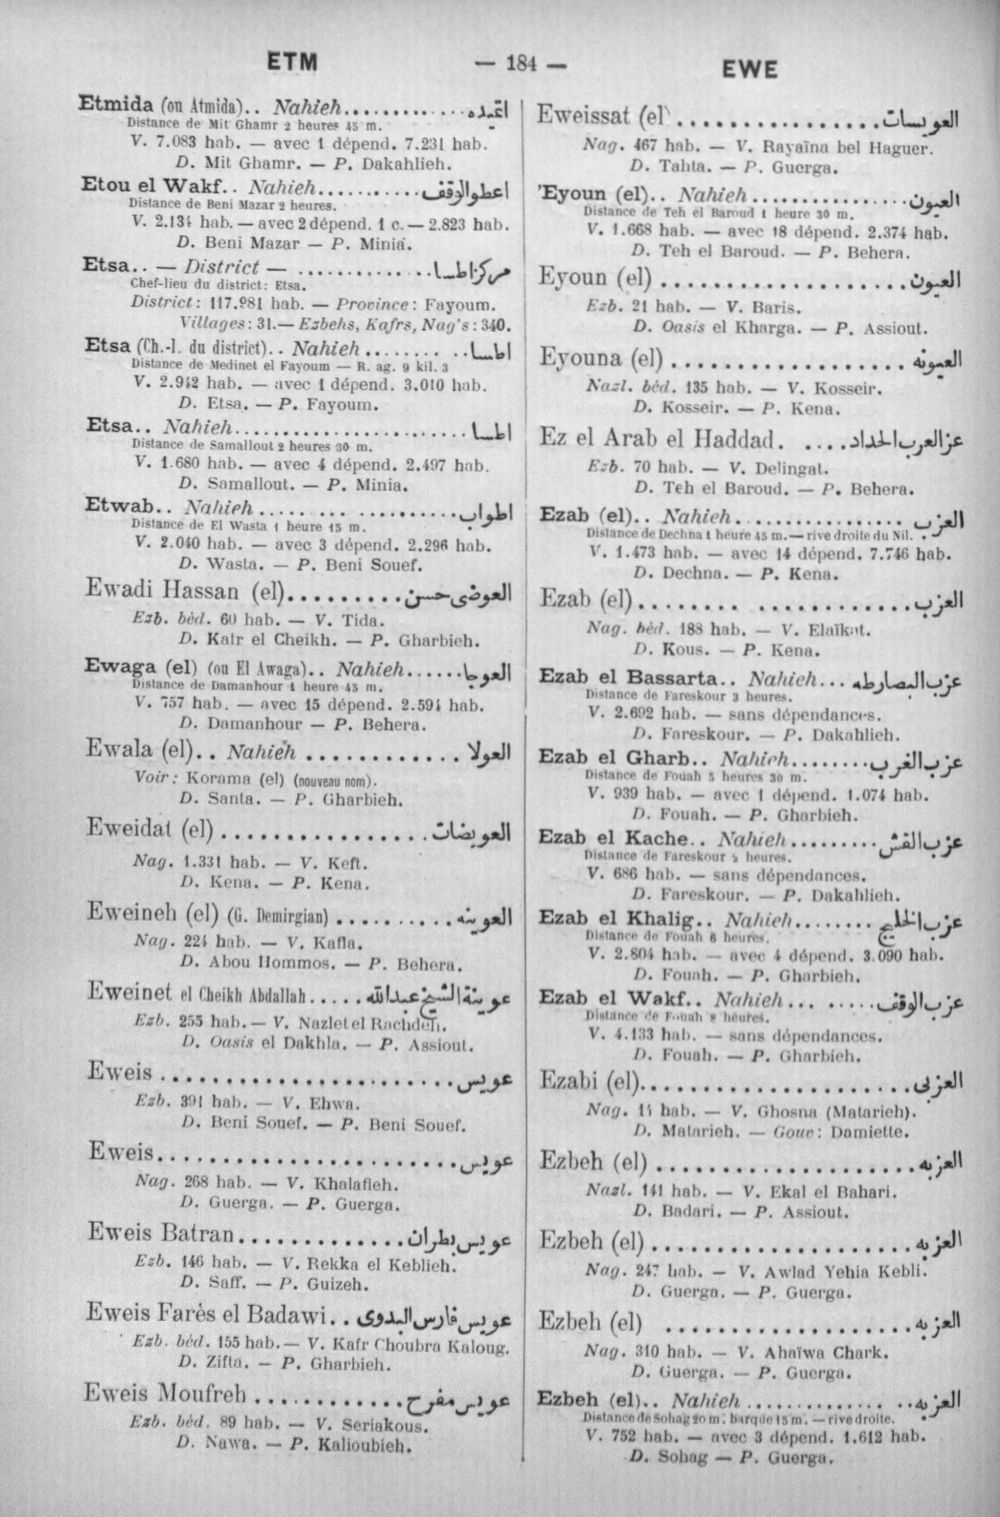 ETM
— 184 —
EWE
Etmida (ou Atmida).. Nahieh............ اتميده
Distance de Mit Ghamr 2 heures 45 m.
V. 7.083 hab. — avec 1 dépend. 7.231 hab.
D. Mit Ghamr. — P. Dakahlieh.
Etou el Wakf.. Nahieh............ اعطو الوقف
Distance de Beni Mazar 2 heures.
V. 2.134 hab. — avec 2 dépend. 1 c. — 2.823 hab.
D. Beni Mazar — P. Minia.
Etsa.. — District — ............ مركز اطسا
Chef-lieu du district: Etsa.
District: 117.981 hab. — Province: Fayoum.
Villages: 31.— Ezbehs, Kafrs, Nag's: 340.
Etsa (Ch.-l. du district).. Nahieh .......... اطسا
Distance de Medinet el Fayoum — R. ag. 9 kil. 3
V. 2.942 hab. — avec 1 dépend. 3.010 hab.
D. Etsa. — P. Fayoum.
Etsa.. Nahieh...................... اطسا
Distance de Samallout 2 heures 30 m.
V. 1.680 hab. — avec 4 dépend. 2.497 hab.
D. Samallout. — P. Minia.
Etwab.. Nahieh ................. اطواب
Distance de El Wasta 1 heure 15 m.
V. 2.040 hab. — avec 3 dépend. 2.296 hab.
D. Wasta. — P. Beni Souef.
Ewadi Hassan (el).......... العوضى حسن
Ezb. béd. 60 hab. — V. Tida.
D. Kafr el Cheikh. — P. Gharbieh.
Ewaga (el) (ou El Awaga).. Nahieh...... العوجا
Distance de Damanhour 1 heure 45 m.
V. 757 hab. — avec 15 dépend. 2.594 hab.
D. Damanhour — P. Behera.
Ewala (el).. Nahieh ............. العولا
Voir: Korama (el) (nouveau nom).
D. Santa. — P. Gharbieh.
Eweidat (el) ................ العويضات
Nag. 1.331 hab. — V. Keft.
D. Kena. — P. Kena.
Eweineh (el) (G. Demirgian) .......... العوينه
Nag. 224 hab. — V. Kafla.
D. Abou Hommos. — P. Behera.
Eweinet el Cheikh Abdallah..... عوينة الشيخ عبد الله
Ezb. 255 hab.— V. Nazlet el Rachdeh.
D. Oasis el Dakhla. — P. Assiout.
Eweis ...................... عويس
Ezb. 391 hab. — V. Ehwa.
D. Beni Souef. — P. Beni Souef.
Eweis...................... عويس
Nag. 268 hab. — V. Khalafieh.
D. Guerga. — P. Guerga.
Eweis Batran............. عويس بطران
Ezb. 146 hab. — V. Rekka el Keblieh.
D. Saff. — P. Guizeh.
Eweis Farès el Badawi.. عويس فارس البدوى
Ezb. béd. 155 hab.— V. Kafr Choubra Kaloug.
D. Zifta. — P. Gharbieh.
Eweis Moufreh ........... عويس مفرح
Ezb. béd. 89 hab. — V. Seriakous.
D. Nawa. — P. Kalioubieh.
Eweissat (el) ................ العويسات
Nag. 467 hab. — V. Rayaïna bel Haguer.
D. Tahta. — P. Guerga.
'Eyoun (el).. Nahieh ............... العيون
Distance de Teh el Baroud 1 heure 30 m.
V. 1.668 hab. — avec 18 dépend. 2.374 hab.
D. Teh el Baroud. — P. Behera.
Eyoun (el) .................. العيون
Ezb. 21 hab. — V. Baris.
D. Oasis el Kharga. — P. Assiout.
Eyouna (el) ................. العيونه
Nazl. béd. 135 hab. — V. Kosseir.
D. Kosseir. — P. Kena.
Ez el Arab el Haddad. .... عز العرب الحداد
Ezb. 70 hab. — V. Delingat.
D. Teh el Baroud. — P. Behera.
Ezab (el).. Nahieh................. العزب
Distance de Dechna 1 heure 45 m.— rive droite du Nil.
V. 1.473 hab. — avec 14 dépend. 7.746 hab.
D. Dechna. — P. Kena.
Ezab (el)....... ............ العزب
Nag. béd. 188 hab. — V. Elaïkat.
D. Kous. — P. Kena.
Ezab el Bassarta.. Nahieh... عزب البصارطه
Distance de Fareskour 3 heures.
V. 2.692 hab. — sans dépendances.
D. Fareskour. — P. Dakahlieh.
Ezab el Gharb.. Nahieh........ عزب الغرب
Distance de Fouah 5 heures 30 m.
V. 939 hab. — avec 1 dépend. 1.074 hab.
D. Fouah. — P. Gharbieh.
Ezab el Kache.. Nahieh......... عزب القش
Distance de Fareskour ½ heures.
V. 686 hab. — sans dépendances.
D. Fareskour. — P. Dakahlieh.
Ezab el Khalig.. Nahieh........ عزب الخليج
Distance de Fouah 6 heures.
V. 2.804 hab. — avec 4 dépend. 3.090 hab.
D. Fouah. — P. Gharbieh.
Ezab el Wakf.. Nahieh... ..... عزب الوقف
Distance de Fouah 8 heures.
V. 4.133 hab. — sans dépendances.
D. Fouah. — P. Gharbieh.
Ezabi (el).................... العزبى
Nag. 14 hab. — V. Ghosna (Matarieh).
D. Matarieh. — Gouv: Damiette.
Ezbeh (el) ................... العزبه
Nazl. 141 hab. — V. Ekal el Bahari.
D. Badari. — P. Assiout.
Ezbeh (el) ................... العزبه
Nag. 247 hab. — V. Awlad Yehia Kebli.
D. Guerga. — P. Guerga.
Ezbeh (el) .................. العزبه
Nag. 310 hab. — V. Ahaïwa Chark.
D. Guerga. — P. Guerga.
Ezbeh (el).. Nahieh ............... العزبه
Distance de Sohag 20 m. barque 15 m. — rive droite.
V. 752 hab. — avec 3 dépend. 1.612 hab.
D. Sohag — P. Guerga.